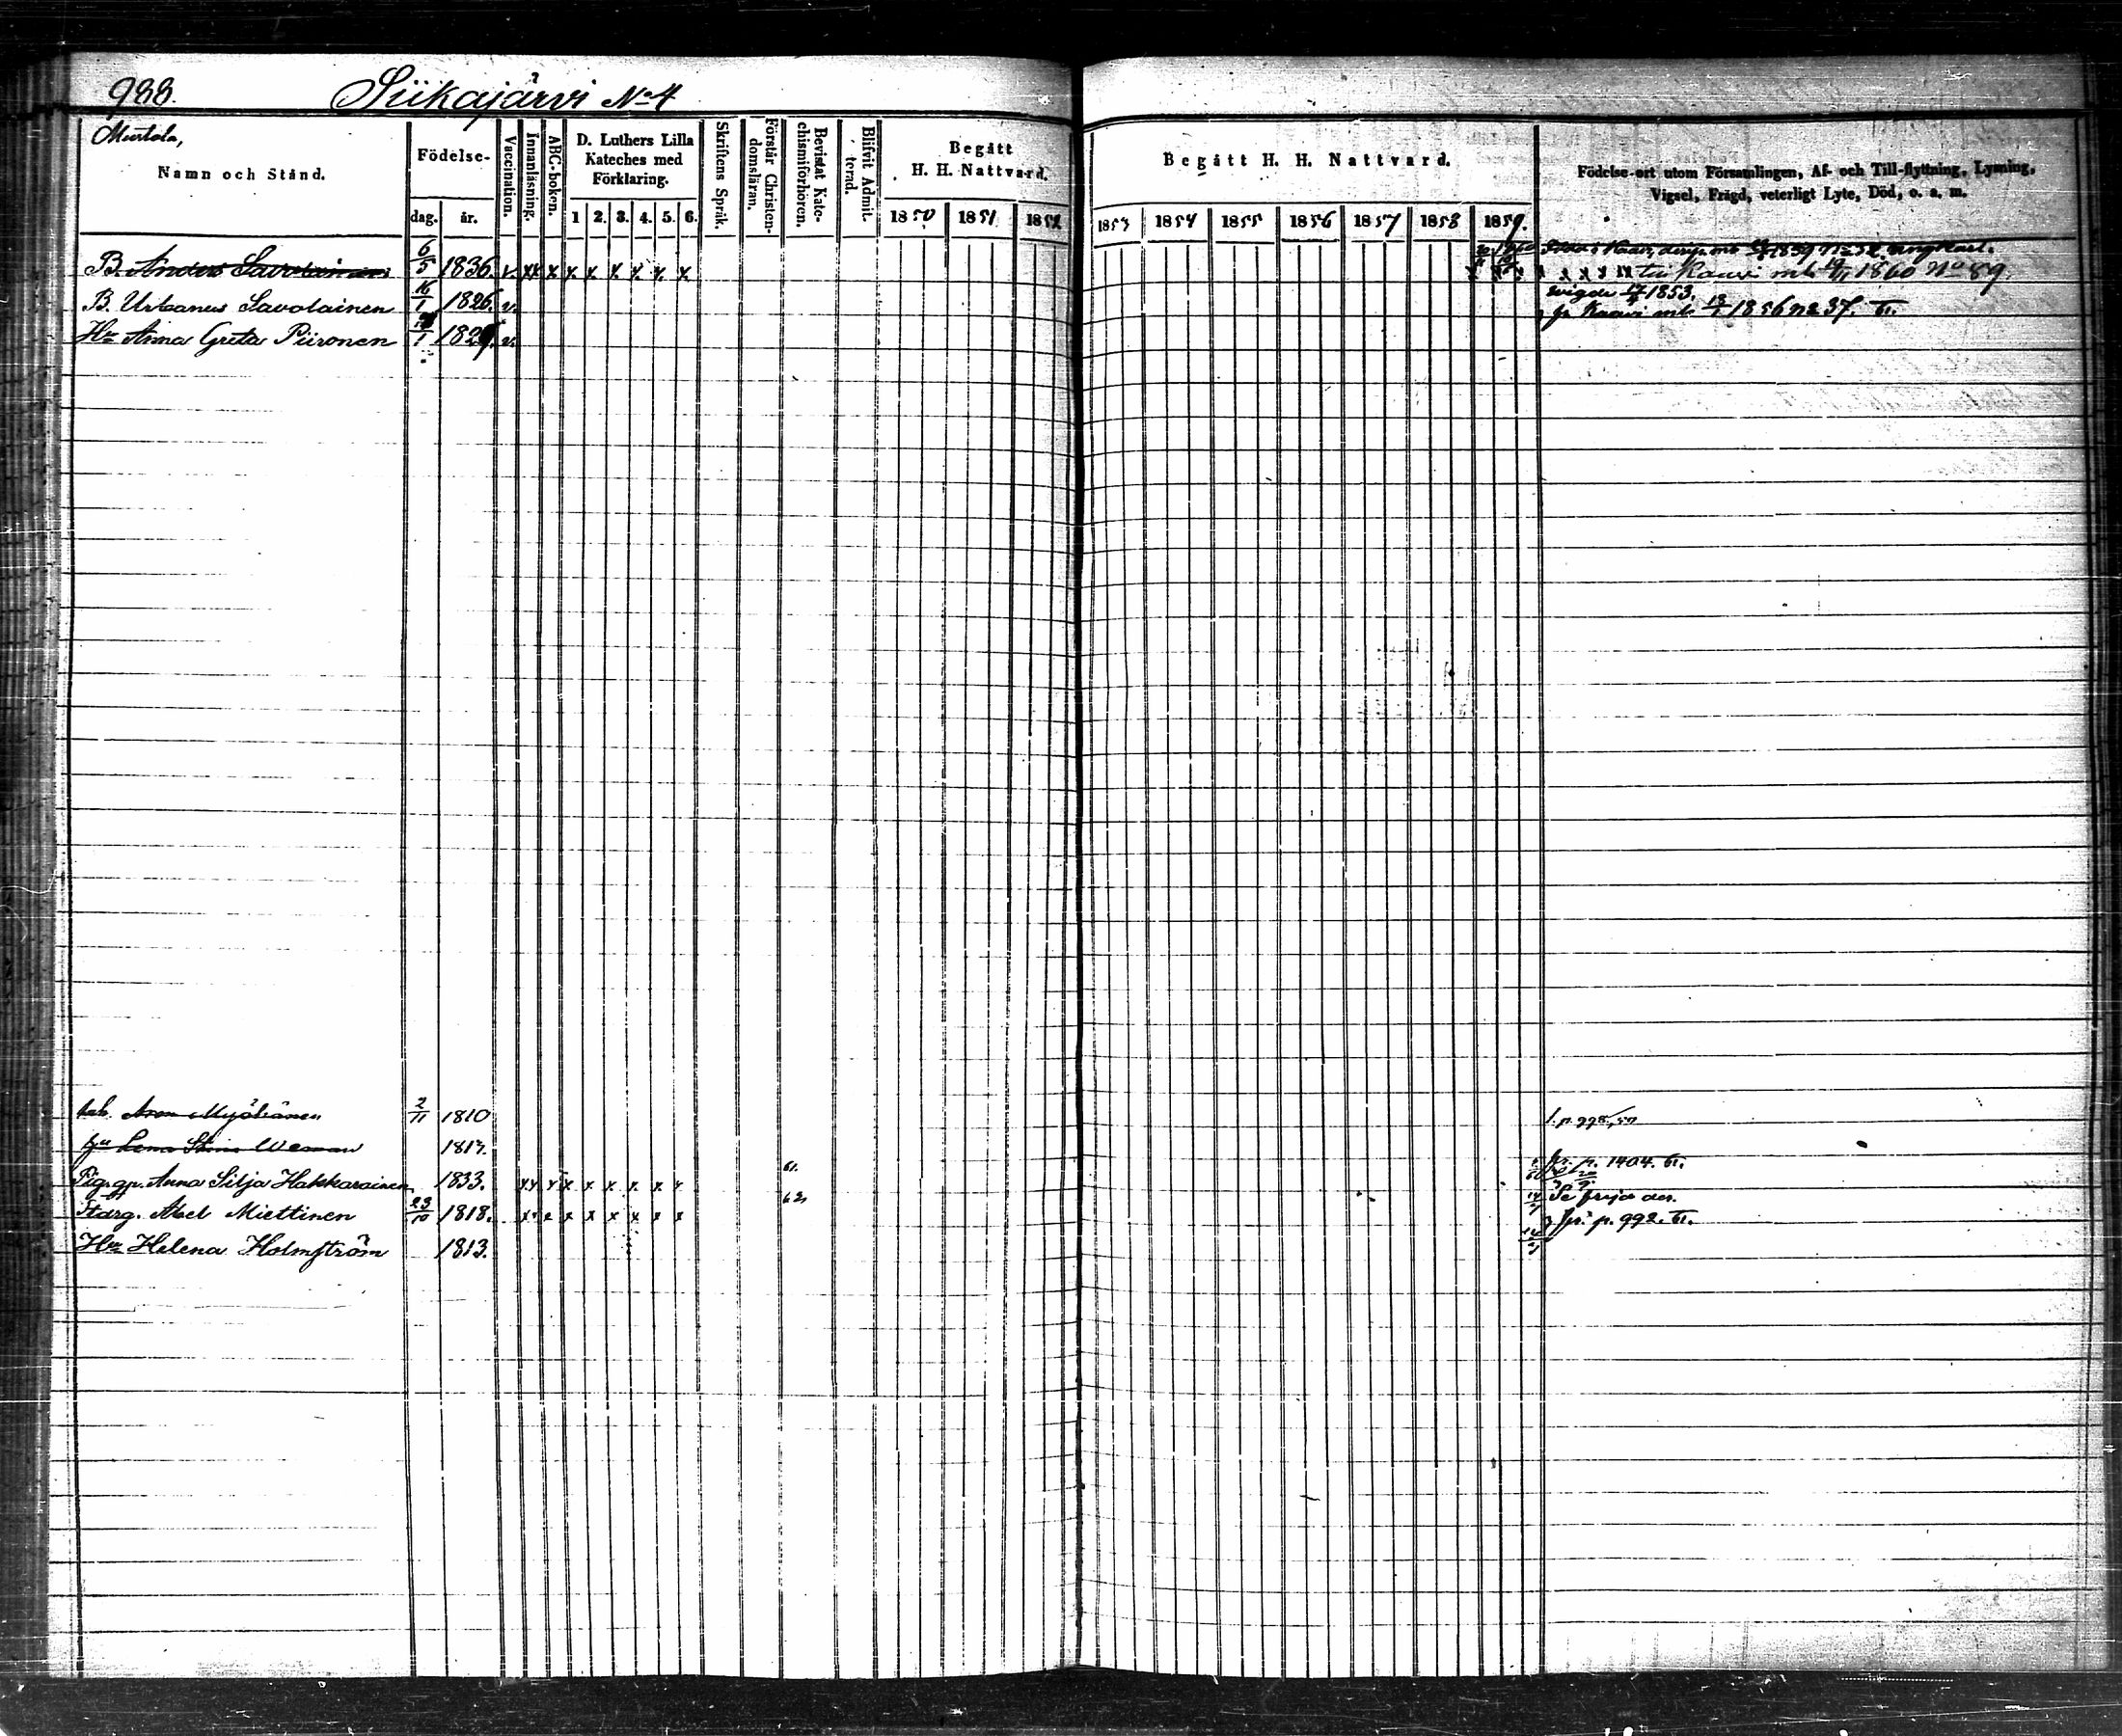 988.
Siikajärvi No 4
Murtola,
Namn och Stånd.
Födelse-
dag. år.
Vaccination.
Innanläsning.
ABC-boken.
D. Luthers Lilla
Kateches med
Förklaring.
1 2. 3. 4. 5. 6.
Skriftens Språk.
Förstår Christen-
domsläran.
Bevistat Kate-
chismiförhören.
Blifvit Admit-
terad.
Begått
H. H. Nattvard.
1850 1851 1852
Begått H. H. Nattvard.
1853 1854 1855 1856 1857 1858 1859.
Födelse-ort utom Församlingen, Af- och Till-flyttning, Lysning,
Vigsel, Frägd, veterligt Lyte, Död, o. s. m.
B. Anders Savolainen 6/5 1836. v. xx x x x x x x x
till Kaavi mb 19/11 1860 No 89.
B. Urbanus Savolainen 16/1 1826. v.
vigde 17/4 1853.
Hu Anna Greta Piironen 1829. v.
fr Kaavi mb 13/1 1856 No 37.
Aron Myöhänen 2/11 1810
Lena Stina Weman 1813.
Pig. Anna Silja Hakkarainen 1833. xx x x x x x x x
61.
fr. p. 1404.
Abel Miettinen 23/10 1818. x x x x x x x x
62.
Hu Helena Holmström 1813.
fr. p. 992.